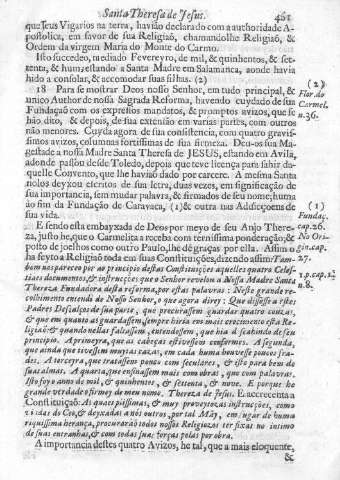 Santa Theresa de Jesus. 461
que Jesus Vigarios na terra, havião declarado com a authoridade A-
postolica, em favor de sua Religiaõ, chamandolhe Religiaõ, &
Ordem da virgem Maria do Monte do Carmo.
Isto succedeo, mediado Fevereyro, de mil, & quinhentos, & set-
tenta, & hum, estando a Santa Madre em Salamanca, aonde havia
hido a consolar, & accomodar suas filhas. (2)
18 Para se mostrar Deos nosso Senhor, em tudo principal, &
unico Author de nossa Sagrada Reforma, havendo cuydado de sua
Fundaçaõ com os expressos mandatos, & promptos avizos, que fi-
hão dito, & depois, de sua extensão em varias partes, com outros
não menores. Cuyda agora de sua consistencia, com quatro gravis-
simos avizos, columnas fortissimas de sua firmeza. Deu-os sua Ma-
gestade a nossa Madre Santa Theresa de JESUS, estando em Avila,
adonde passou desde Toledo, depois que teve licença para sahir da-
quelle Convento, que lhe havião dado por carcere. A mesma Santa
nolos deyxou escritos de sua letra, duas vezes, em significação de
sua importancia, sem mudar palavra, & firmados de seu nome; huma
ao fim da Fundação de Caravaca, (1) & outra nas Addicçoens de
sua vida.
E sendo esta embayxada de Deos por meyo de seu Anjo There-
za, justo he, que o Carmelita a receba com terníssima ponderação; &
posto de joelhos como outro Paulo, lhe dè graças por ella. Assim o
ha feyto a Religiaõ toda em suas Constituições, dizendo assim: Tam-
bem nos pareceo por ao principio destas Constituições aquelles quatro Celes-
tiaes documentos, & instrucções que o Senhor revelou a Nossa Madre Santa
Thereza Fundadora desta reforma, por estas palavras: Neste grande re-
colhimento entendi de Nosso Senhor, o que agora direy: Que dissesse a estes
Padres Descalços de sua parte, que procurassem guardar quatro couzas,
& que em quanto as guardassem, sempre hiria em mais crecimento esta Re-
ligiaõ: & quando nellas faltassem, entendessem, que hia descahindo de seu
principio. A primeyra, que as cabeças estivessem conformes. A segunda,
que ainda que tivessem muytas cazas, em cada huma houvesse poucos fra-
des. A terceyra, que tratassem pouco com seculares, & isto para bem de
suas almas. A quarta, que ensinassem mais com obras, que com palavras.
Isto foy o anno de mil, & quinhentos, & settenta, & nove. E porque he
grande verdade o firmey de meu nome. Thereza de Jesus. E accrecenta a
Constituiçaõ: As quaes piissimas, & muy proveytozas instrucções, como
do Ceo, & deyxadas a nós outros, por tal Mãy, em lugar de huma
riquissima herança, procurarão todos nossos Religiozos ter fixas no intimo
de suas entranhas, & com todas suas forças polas por obra.
A importancia destes quatro Avizos, he tal, que a mais eloquente,
&
(2)
Flor. do
Carmel.
n.36.
(1)
Fundaç.
cap.26.
No Ori-
gin. cap.
27.
1. p. cap. 12
n.8.